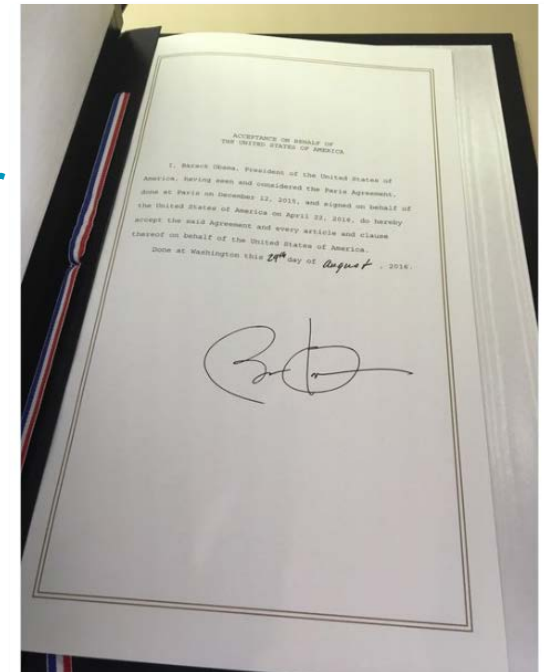 ACCEPTANCE ON BEHALF OF
THE UNITED STATES OF AMERICA
I, Barack Obama, President of the United States of
America, having seen and considered the Paris Agreement,
done at Paris on December 12, 2015, and signed on behalf of
the United States of America on April 22, 2016, do hereby
accept the said Agreement and every article and clause
thereof on behalf of the United States of America.
Done at Washington this 29th day of August , 2016.